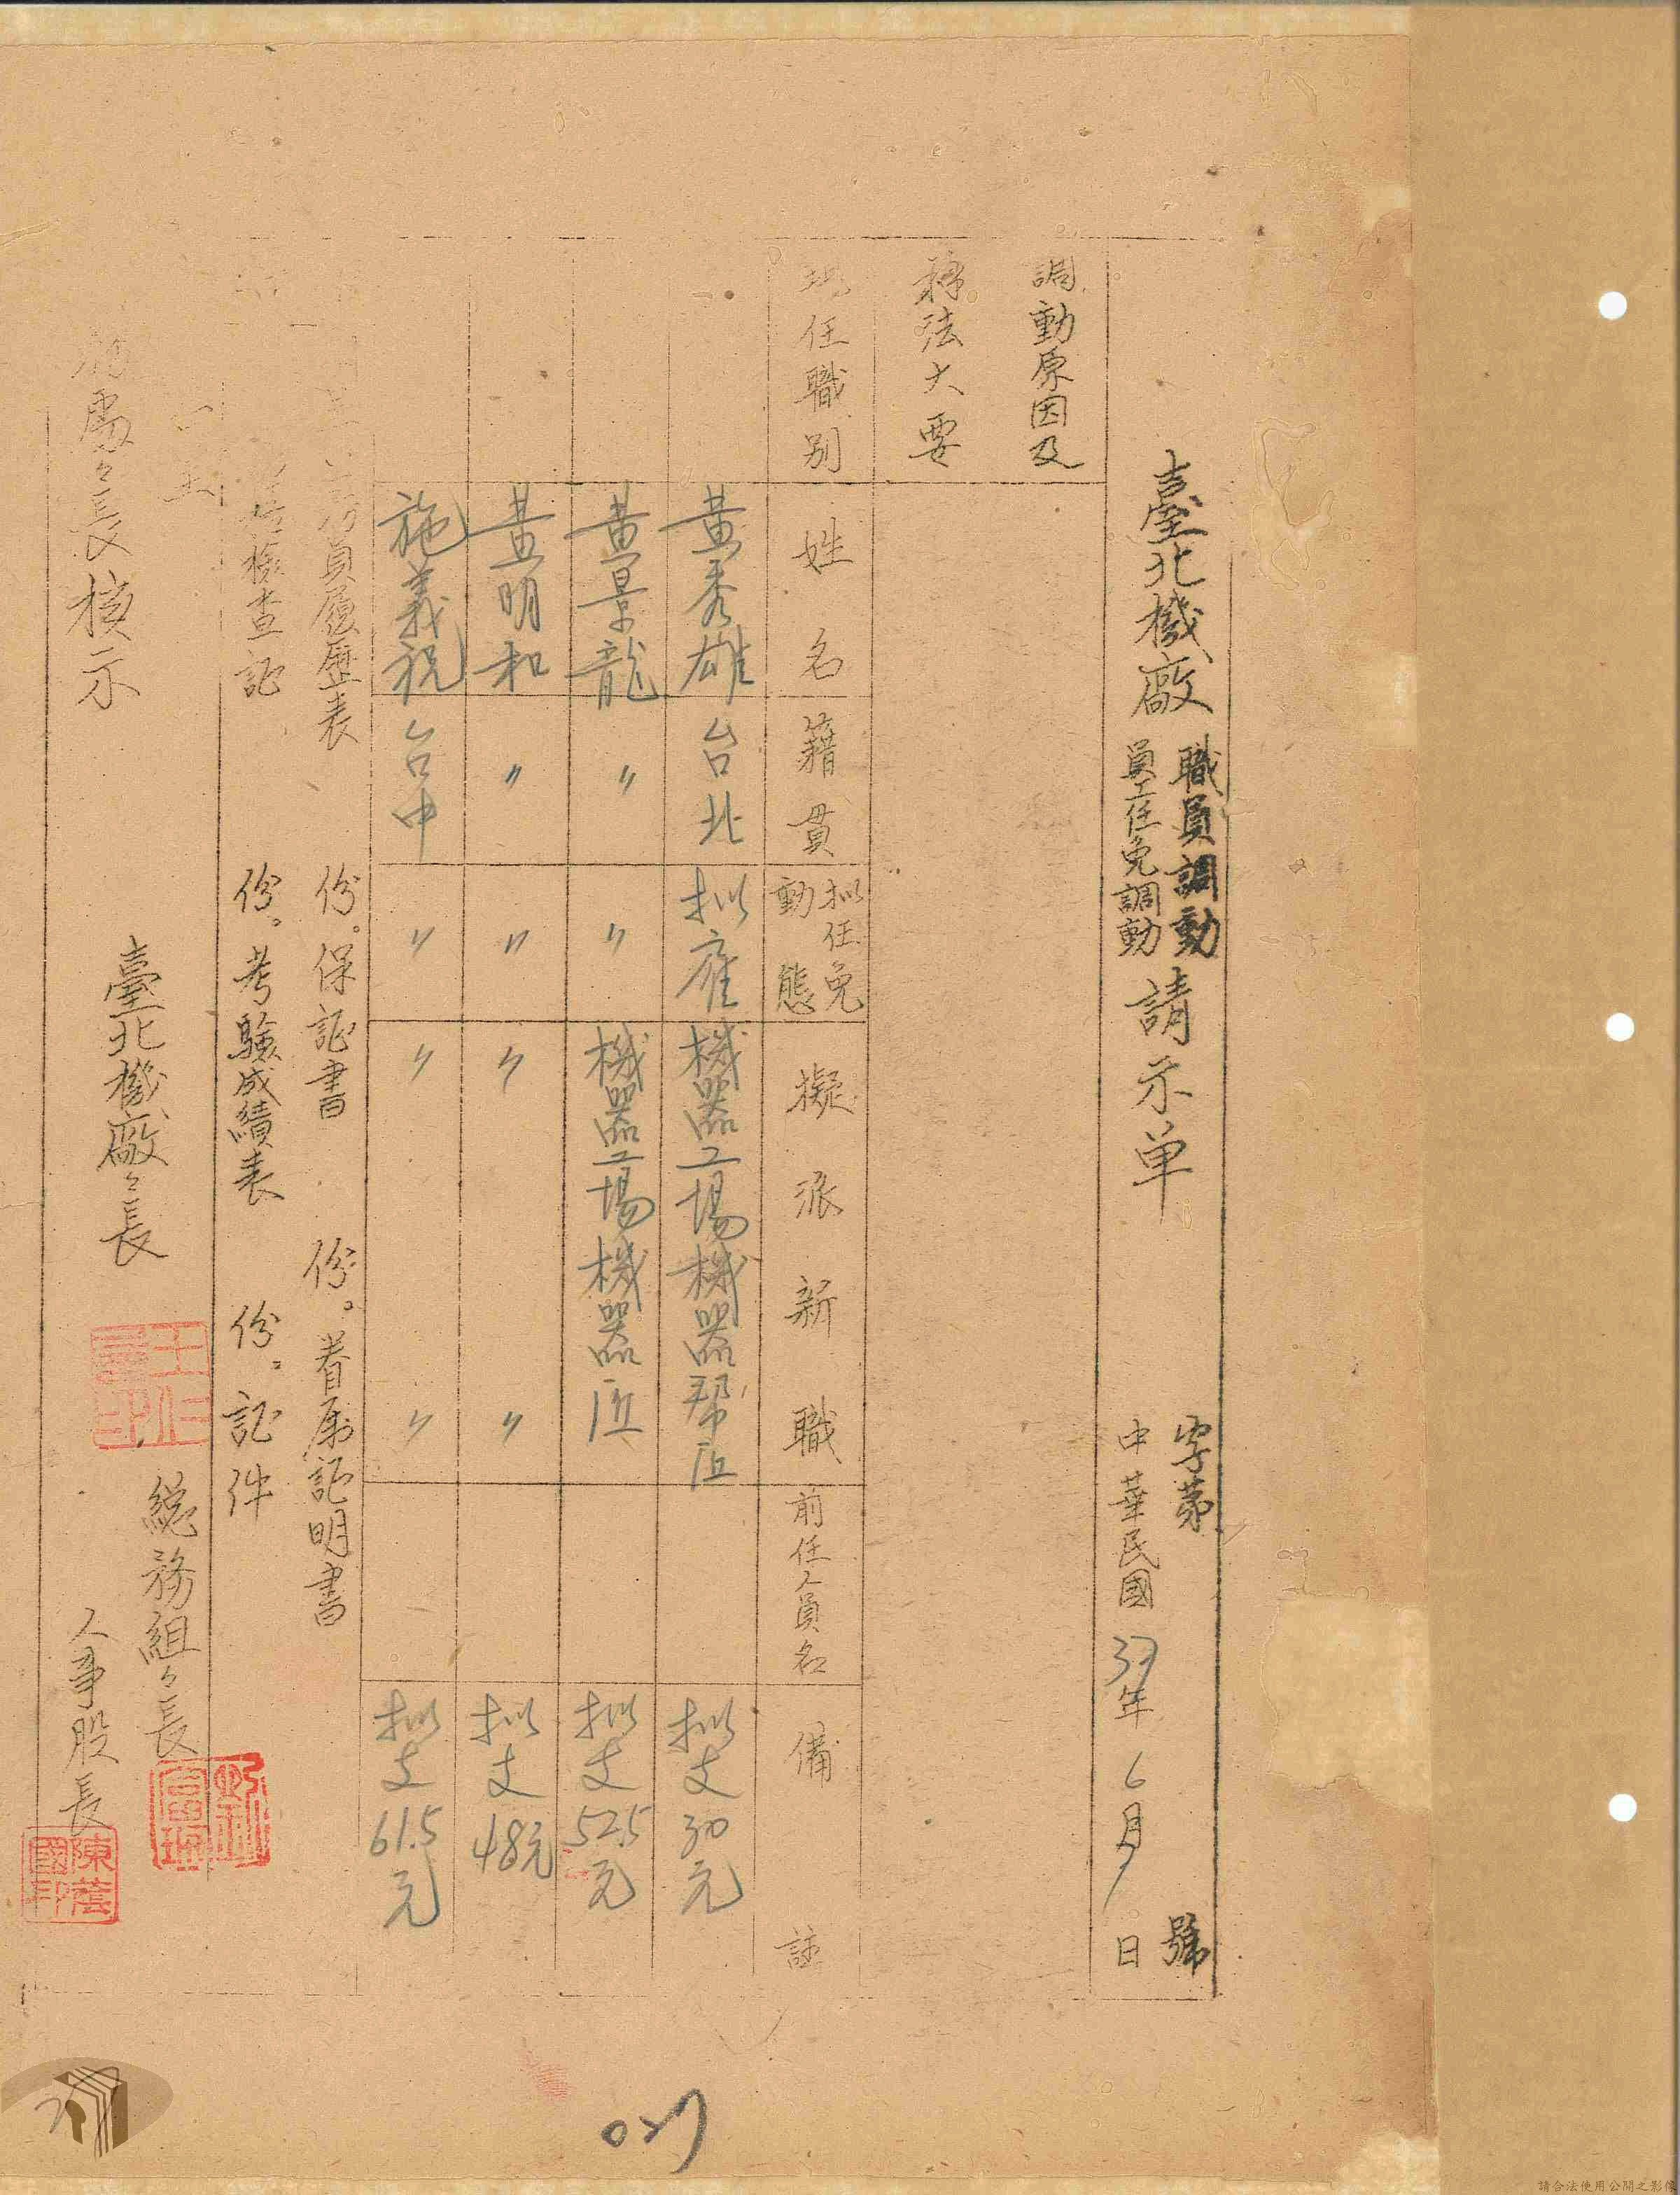 臺北機廠 職員調動 請示单 字第 號
員工任免調動 中華民國 37年 6月 日
調動原因及
辦法大要
現任職別 姓名 籍貫 拟任免動態 擬派新職 前任人員名 備註
黃秀雄 台北 拟雇 機器工場機器帮匠 拟支30元
黃景龍 〃 〃 機器工場機器匠 拟支52.5元
黃明和 〃 〃 〃 〃 拟支48元
施義祝 台中 〃 〃 〃 拟支61.5元
員履歷表 份。保証書 份。眷屬証明書
檢查証 份。考驗成績表 份。証件
總務組々長
處々長核示 臺北機廠々長
人事股長
陳蔭國印
027
請合法使用公開之影像